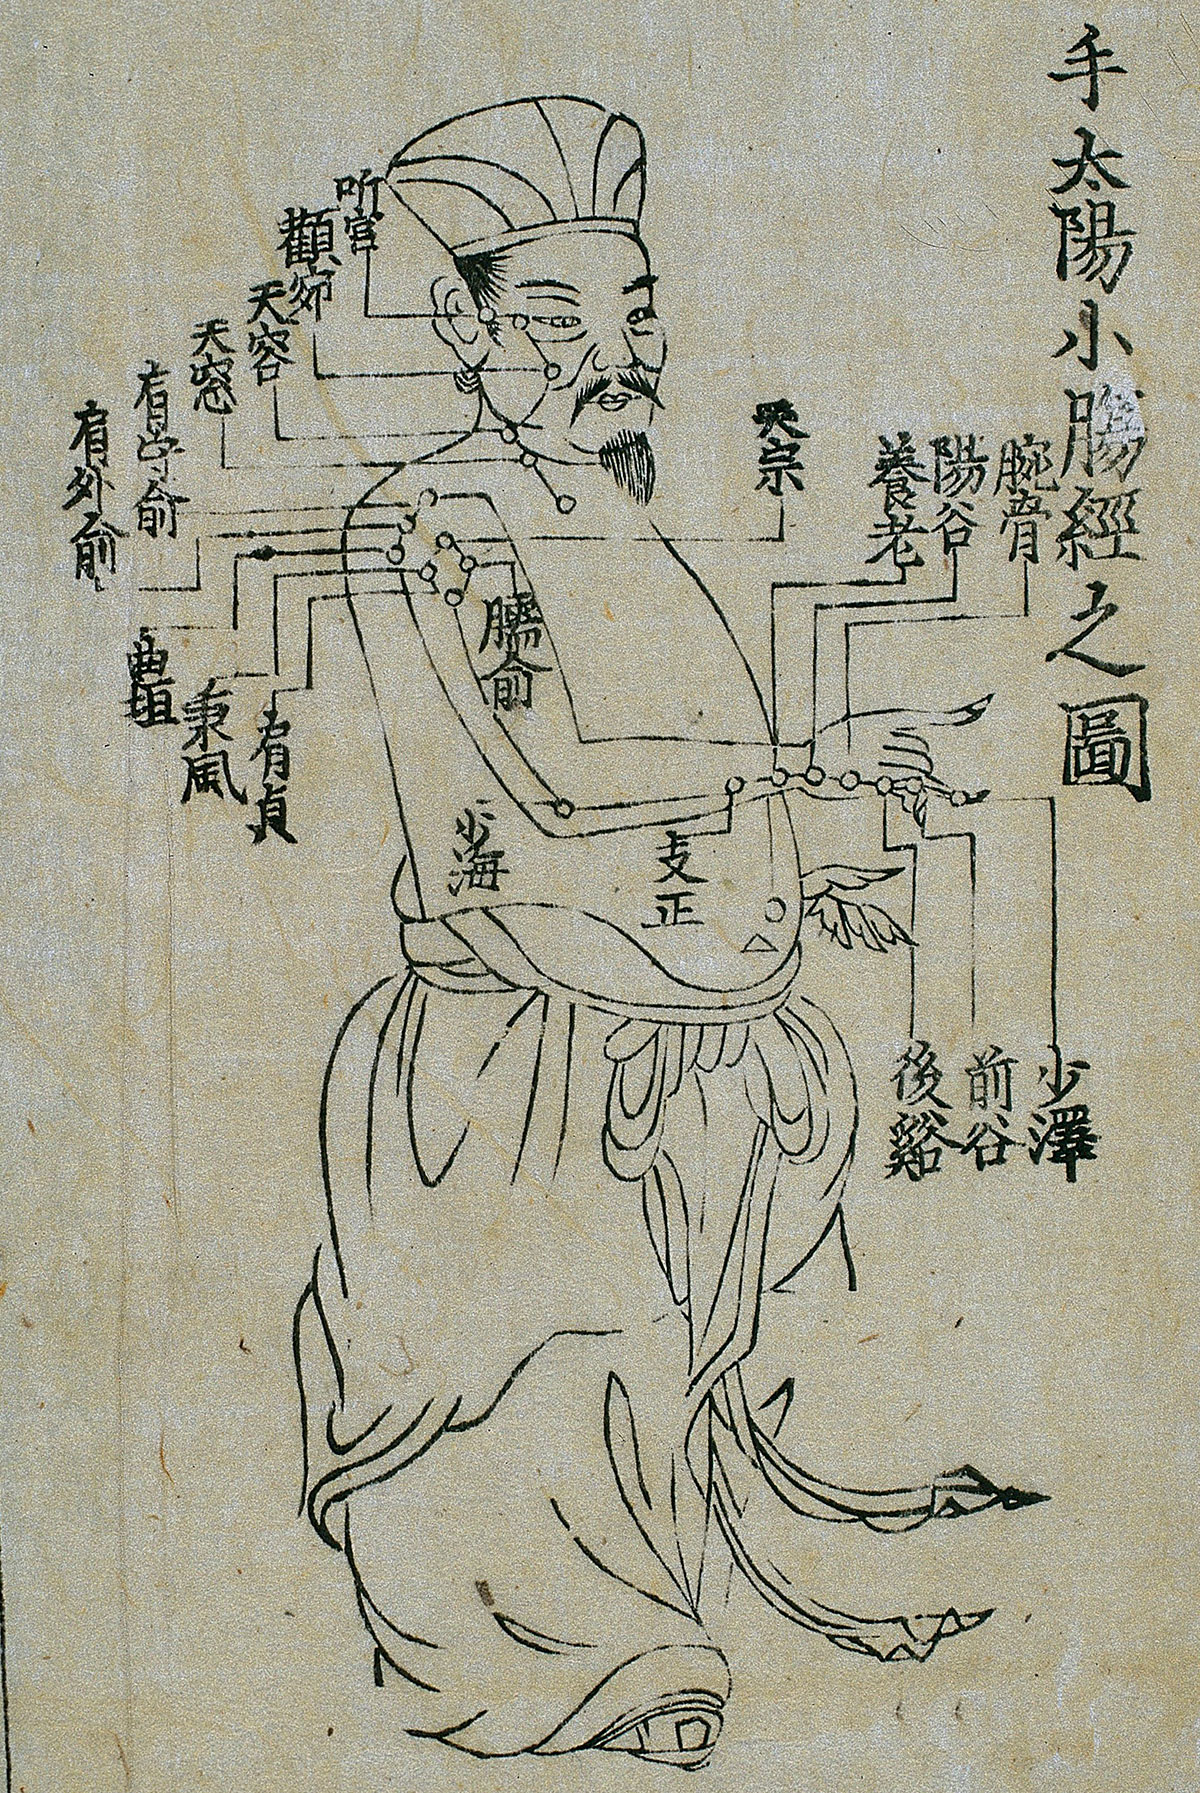 手太陽小腸經之圖
腕骨
陽谷
養老
天宗
听宫
顴窌
天容
天窓
肩中俞
肩外俞
臑俞
肩貞
秉風
曲垣
支正
小海
少澤
前谷
後谿